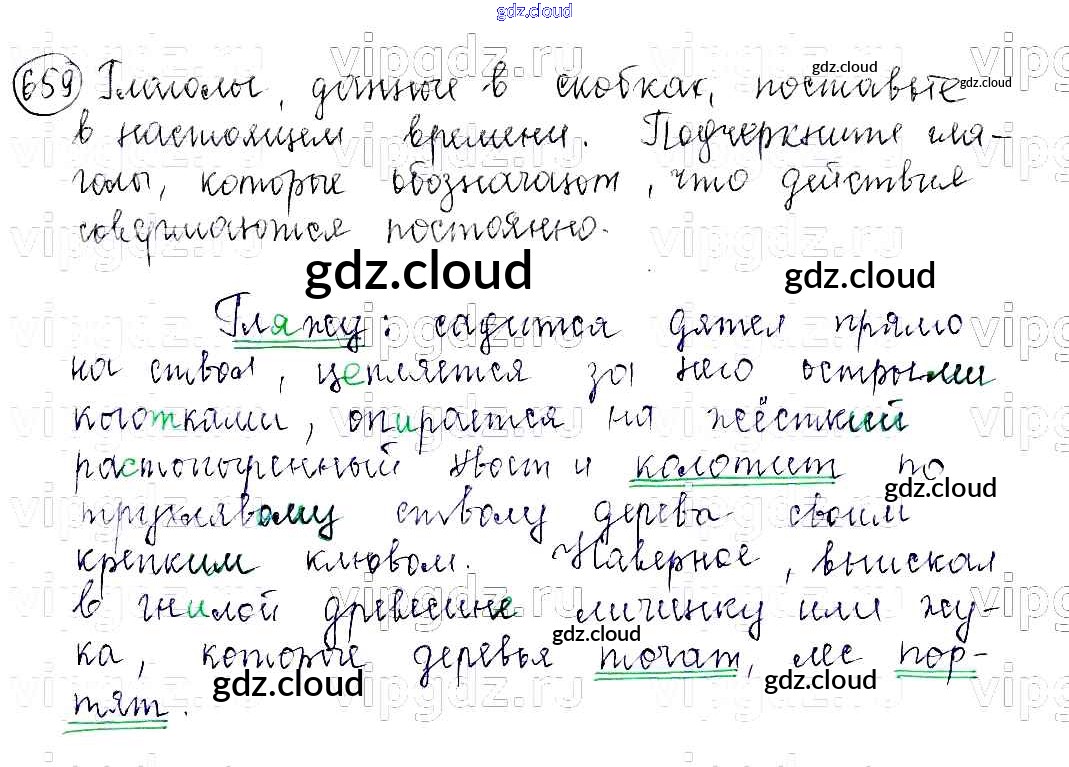 gdz.cloud
659 Глаголы, данные в скобках, поставьте
в настоящем времени. Подчеркните гла-
голы, которые обозначают, что действия
совершаются постоянно.
Гляжу: садится дятел прямо
на ствол, цепляется за него острыми
коготками, опирается на жёсткий
растопыренный хвост и колотит по
трухлявому стволу дерева своим
крепким клювом. Наверное, выискал
в гнилой древесине личинку или жу-
ка, которые деревья точат, лес пор-
тят.